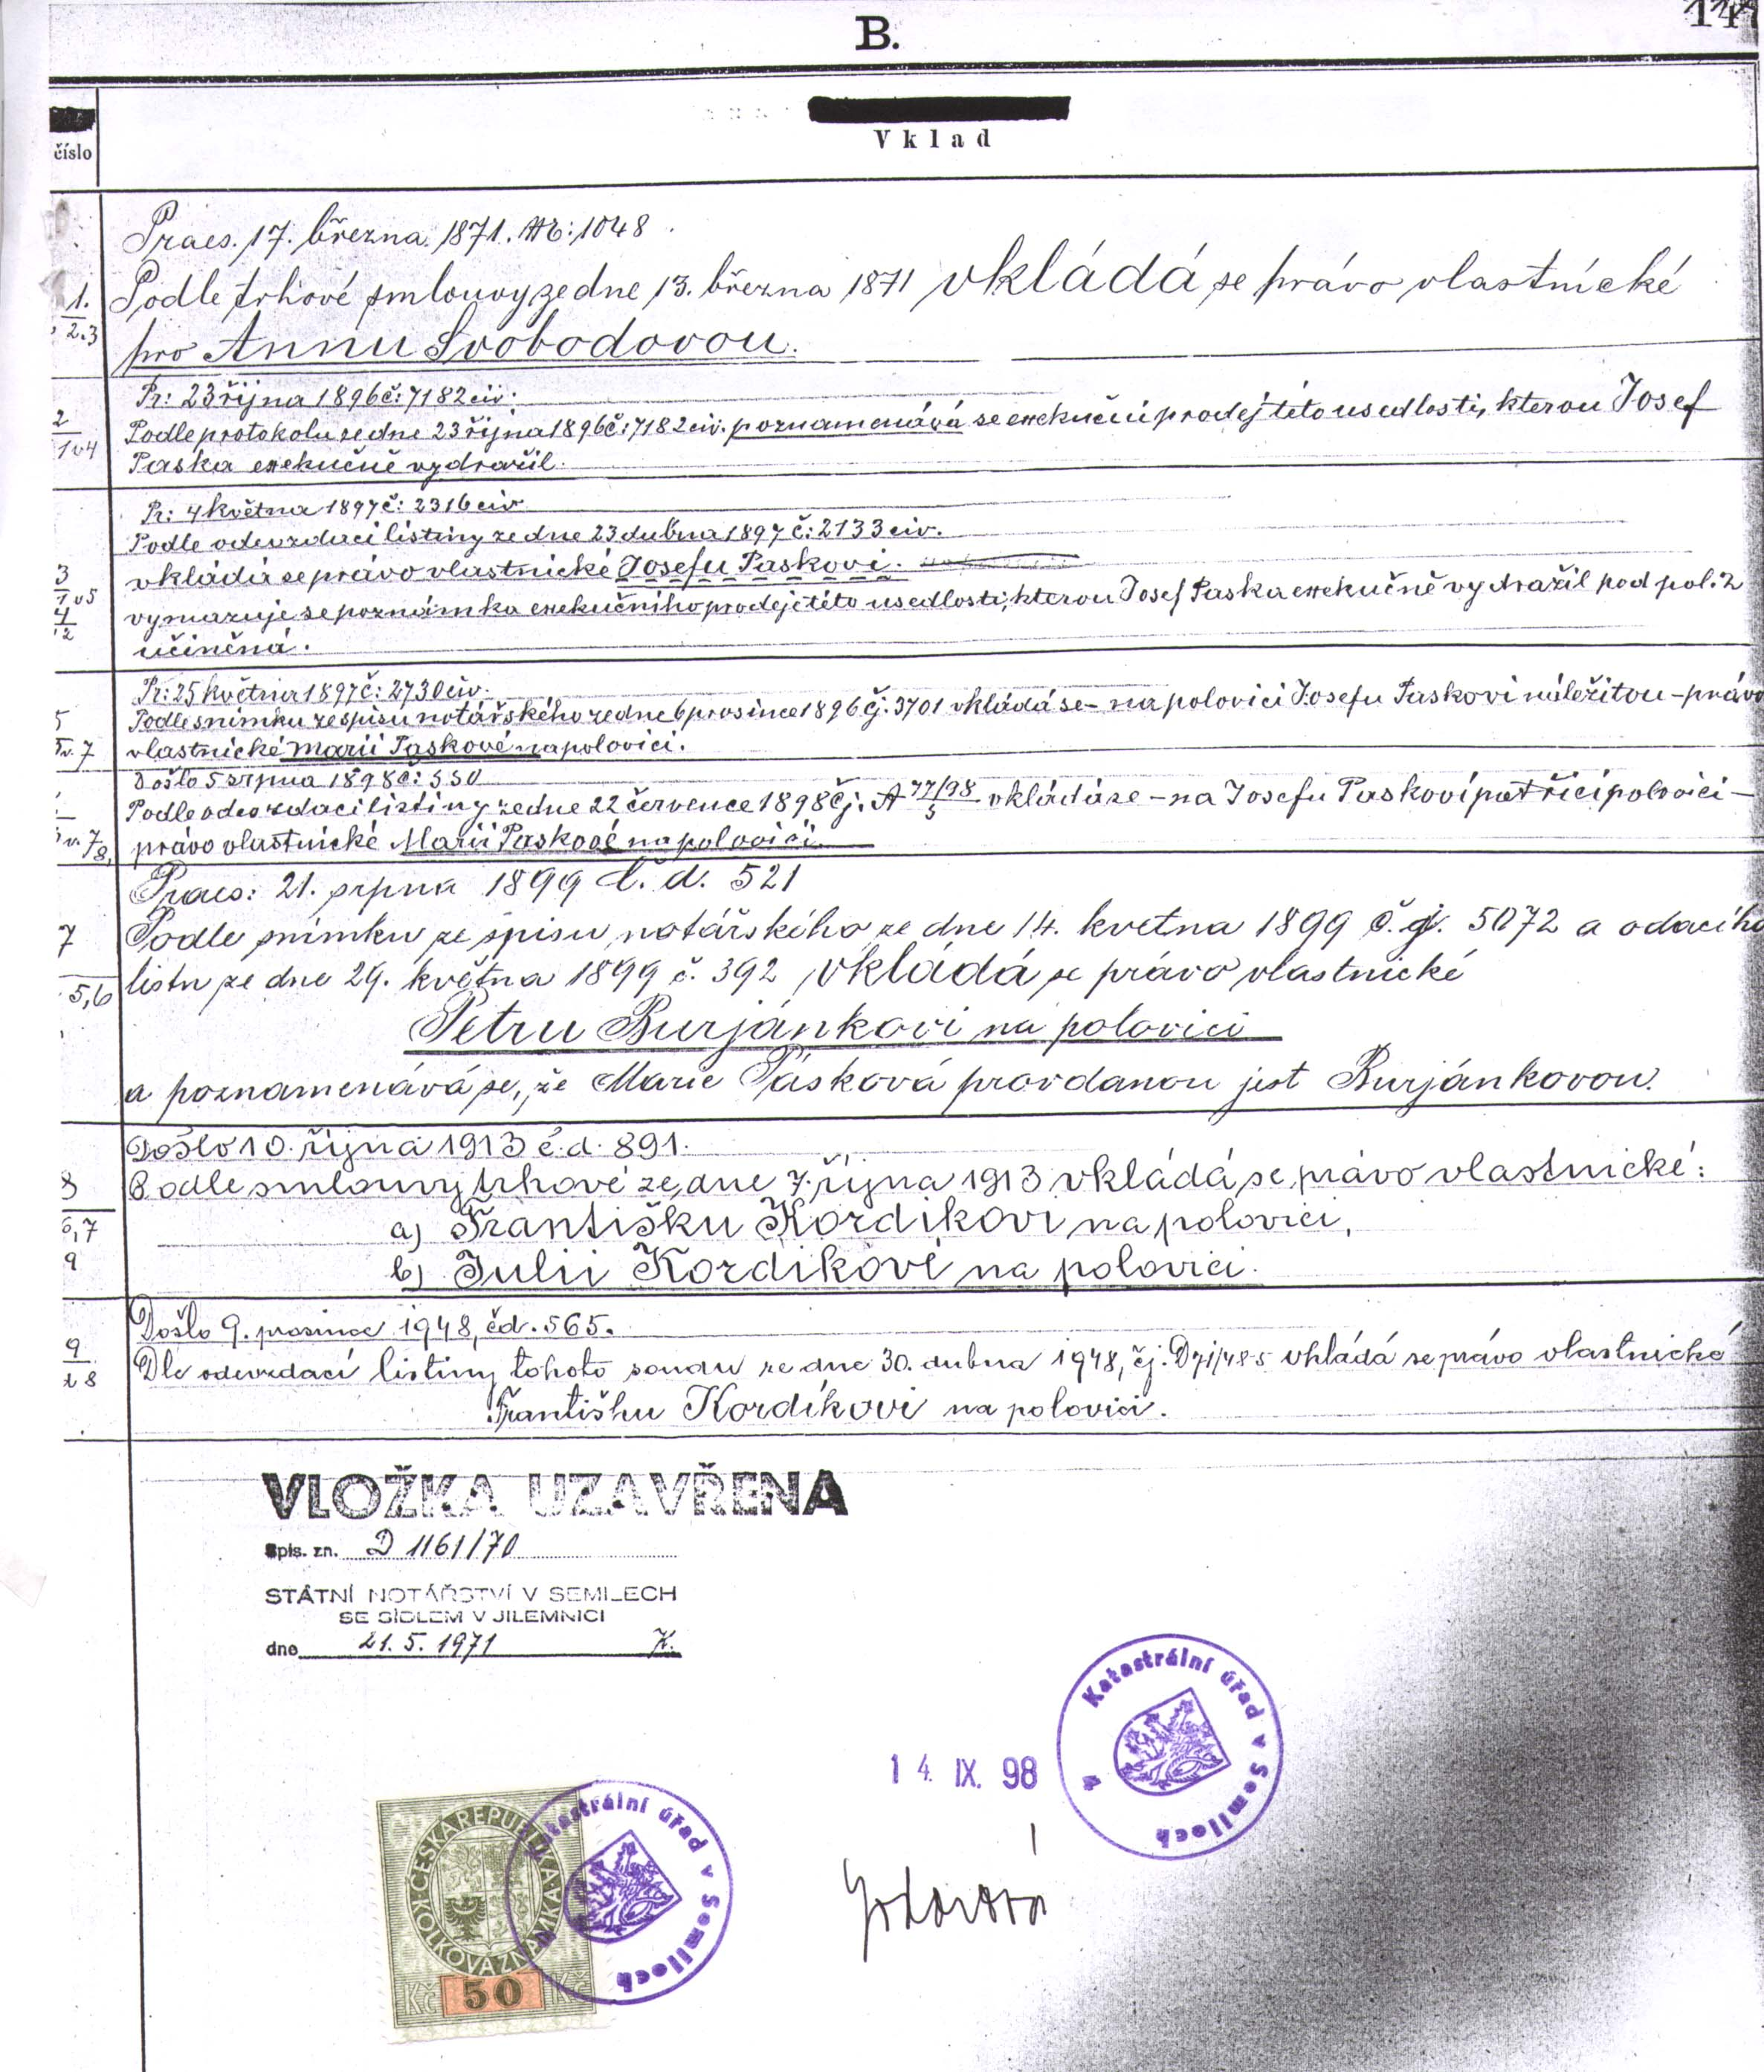 B.
14
číslo
Vklad
Praes. 17. března 1871. №: 1048
1. Podle trhové smlouvy ze dne 13. března 1871 vkládá se právo vlastnické
2.3 pro Annu Svobodovou.
Pr: 23 října 1896 č: 7182 civ.
2 Podle protokolu ze dne 23 října 1896 č: 7182 civ. poznamenává se exekuční prodej této usedlosti, kterou Josef
Paska exekučně vydražil.
Pr: 4 května 1897 č: 2316 civ
Podle odevzdací listiny ze dne 23 dubna 1897 č: 2133 civ.
3 vkládá se právo vlastnické Josefu Paskovi.
4 vymazuje se poznámka exekučního prodeje této usedlosti, kterou Josef Paska exekučně vydražil pod pol. 2
učiněná.
Pr: 25 května 1897 č: 2730 civ.
5 Podle snímku ze spisu notářského ze dne 6 prosince 1896 čj. 3701 vkládá se – na polovici Josefu Paskovi náležitou – právo
vlastnické Marii Paskové na polovici.
Došlo 5 srpna 1898 č: 550
Podle odevzdací listiny ze dne 22 července 1898 čj. A 77/98 5 vkládá se – na Josefu Paskovi patřící polovici –
právo vlastnické Marii Paskové na polovici.
Praes: 21. srpna 1899 č. d. 521
7 Podle snímku ze spisu notářského ze dne 14. května 1899 č. j. 5072 a odacího
5,6 listu ze dne 29. května 1899 č. 392 vkládá se právo vlastnické
Petru Burjánkovi na polovici
a poznamenává se, že Marie Pásková provdanou jest Burjánkovou.
Došlo 10. října 1913 č. d. 891.
8 Podle smlouvy trhové ze dne 7. října 1913 vkládá se právo vlastnické:
6,7 a) Františku Kordíkovi na polovici,
9 b) Julii Kordíkové na polovici.
Došlo 9. prosince 1948, čd. 565.
9 Dle odevzdací listiny tohoto soudu ze dne 30. dubna 1948, čj. vkládá se právo vlastnické
Františku Kordíkovi na polovici.
VLOŽKA UZAVŘENA
Spis. zn. D 1161/70
STÁTNÍ NOTÁŘSTVÍ V SEMILECH
SE SÍDLEM V JILEMNICI
dne 21. 5. 1971 K.
Katastrální úřad v Semilech
4
14. IX. 98
ČESKÁ REPUBLIKA
KOLKOVÁ ZNÁMKA
Kč 50 Kč
Katastrální úřad v Semilech